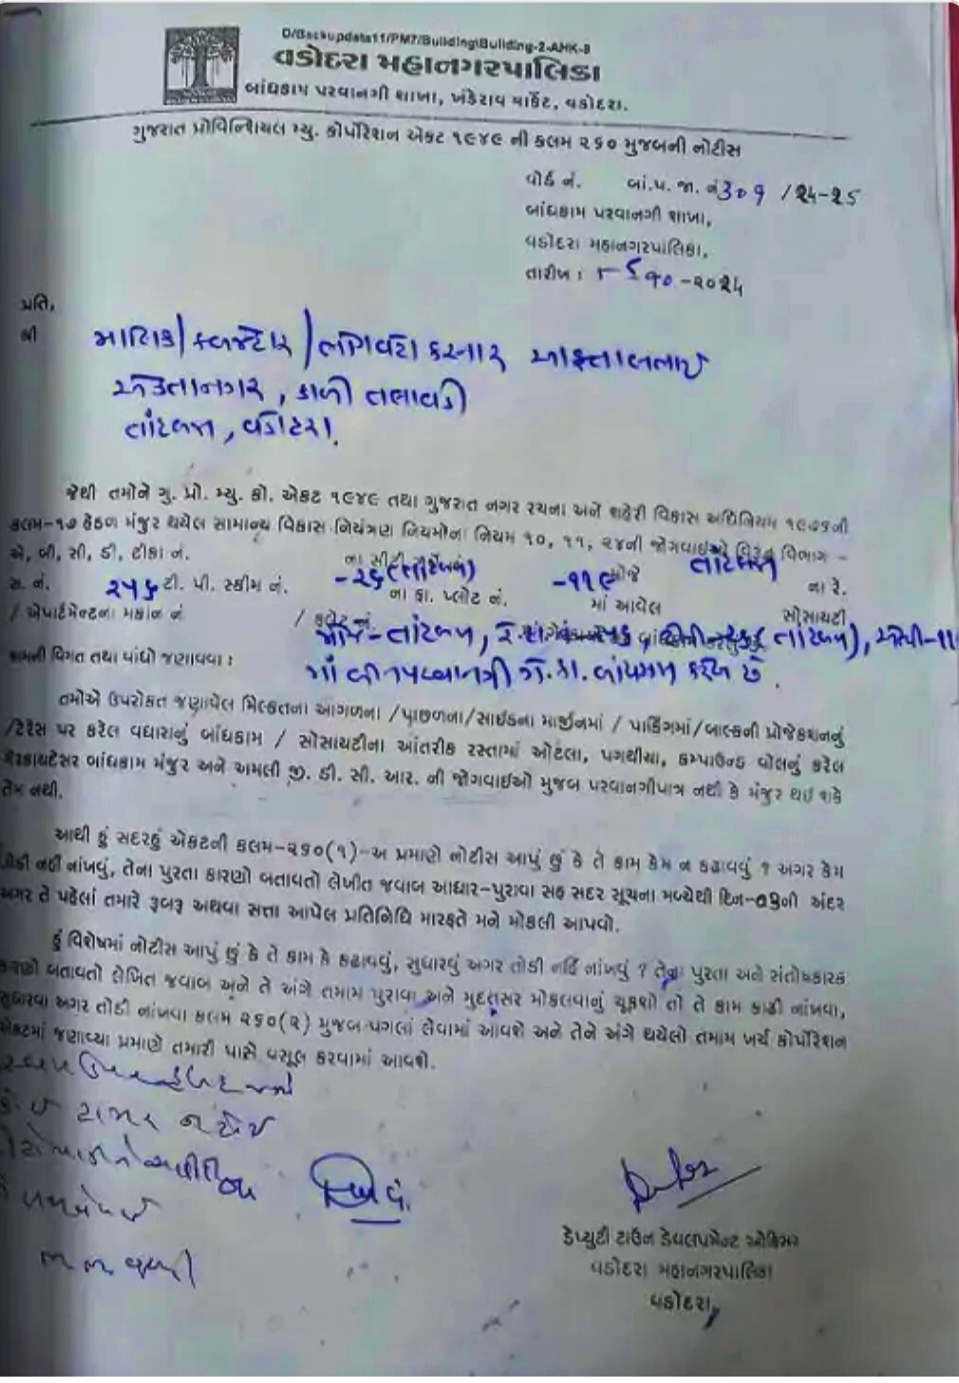 D/Backupdata11/PM7/Building\Building-2-AHK-8
વડોદરા મહાનગરપાલિકા
બાંધકામ પરવાનગી શાખા, ખંડેરાવ માર્કેટ, વડોદરા.
ગુજરાત પ્રોવિન્શિયલ મ્યુ. કોર્પોરેશન એક્ટ ૧૯૪૯ ની કલમ ૨૬૦ મુજબની નોટીસ
વોર્ડ નં. બાં.પ. જા. નં ૩૦૧ /૨૪-૨૫
બાંધકામ પરવાનગી શાખા,
વડોદરા મહાનગરપાલિકા,
તારીખ : ૧૦-૨૦૨૪
પ્રતિ,
શ્રી માલિક/કબ્જેદાર/વહીવટ કરનાર
એકતાનગર, કાળી તલાવડી
તાંદલજા, વડોદરા.
જેથી તમોને ગુ. પ્રો. મ્યુ. કો. એક્ટ ૧૯૪૯ તથા ગુજરાત નગર રચના અને શહેરી વિકાસ અધિનિયમ ૧૯૭૬ની
કલમ-૧૭ હેઠળ મંજુર થયેલ સામાન્ય વિકાસ નિયંત્રણ નિયમોના નિયમ ૧૦, ૧૧, ૨૪ની જોગવાઈઓ વિરૂધ્ધ વિભાગ -
એ, બી, સી, ડી, ટીકા નં. ના સીટી
સ. નં. ૨૫૬ ટી. પી. સ્કીમ નં. -૨૬(તાંદલજા) ના ફા. પ્લોટ નં. -૧૧૯ મોજે તાંદલજા ના રે.
/ એપાર્ટમેન્ટના મકાન નં / ફ્લેટ નં. માં આવેલ સોસાયટી
મોજે-તાંદલજા,
કામની વિગત તથા વાંધો જણાવવા : બાંધકામ કરેલ છે.
તમોએ ઉપરોક્ત જણાવેલ મિલ્કતના આગળના /પાછળના/સાઈડના માર્જીનમાં / પાર્કિંગમાં/બાલ્કની પ્રોજેક્શનનું
/ટેરેસ પર કરેલ વધારાનું બાંધકામ / સોસાયટીના આંતરીક રસ્તામાં ઓટલા, પગથીયા, કમ્પાઉન્ડ વોલનું કરેલ
ગેરકાયદેસર બાંધકામ મંજુર અને અમલી જી. ડી. સી. આર. ની જોગવાઈઓ મુજબ પરવાનગીપાત્ર નથી કે મંજુર થઈ શકે
તેમ નથી.
આથી હું સદરહું એક્ટની કલમ-૨૬૦(૧)-અ પ્રમાણે નોટીસ આપું છું કે તે કામ કેમ ન કઢાવવું ? અગર કેમ
તોડી નહીં નાંખવું, તેના પુરતા કારણો બતાવતો લેખીત જવાબ આધાર-પુરાવા સહ સદર સૂચના મળ્યેથી દિન-૦૩ની અંદર
અગર તે પહેલાં તમારે રૂબરૂ અથવા સત્તા આપેલ પ્રતિનિધિ મારફતે મને મોકલી આપવો.
હું વિશેષમાં નોટીસ આપું છું કે તે કામ કે કઢાવવું, સુધારવું અગર તોડી નહિં નાંખવું ? તેના પુરતા અને સંતોષકારક
કારણો બતાવતો લેખિત જવાબ અને તે અંગે તમામ પુરાવા અને મુદતસર મોકલવાનું ચૂકશો તો તે કામ કાઢી નાંખવા,
સુધારવા અગર તોડી નાંખવા કલમ ૨૬૦(૨) મુજબ પગલાં લેવામાં આવશે અને તેને અંગે થયેલો તમામ ખર્ચ કોર્પોરેશન
એક્ટમાં જણાવ્યા પ્રમાણે તમારી પાસે વસૂલ કરવામાં આવશે.
ડેપ્યુટી ટાઉન ડેવલપમેન્ટ ઓફિસર
વડોદરા મહાનગરપાલિકા
વડોદરા